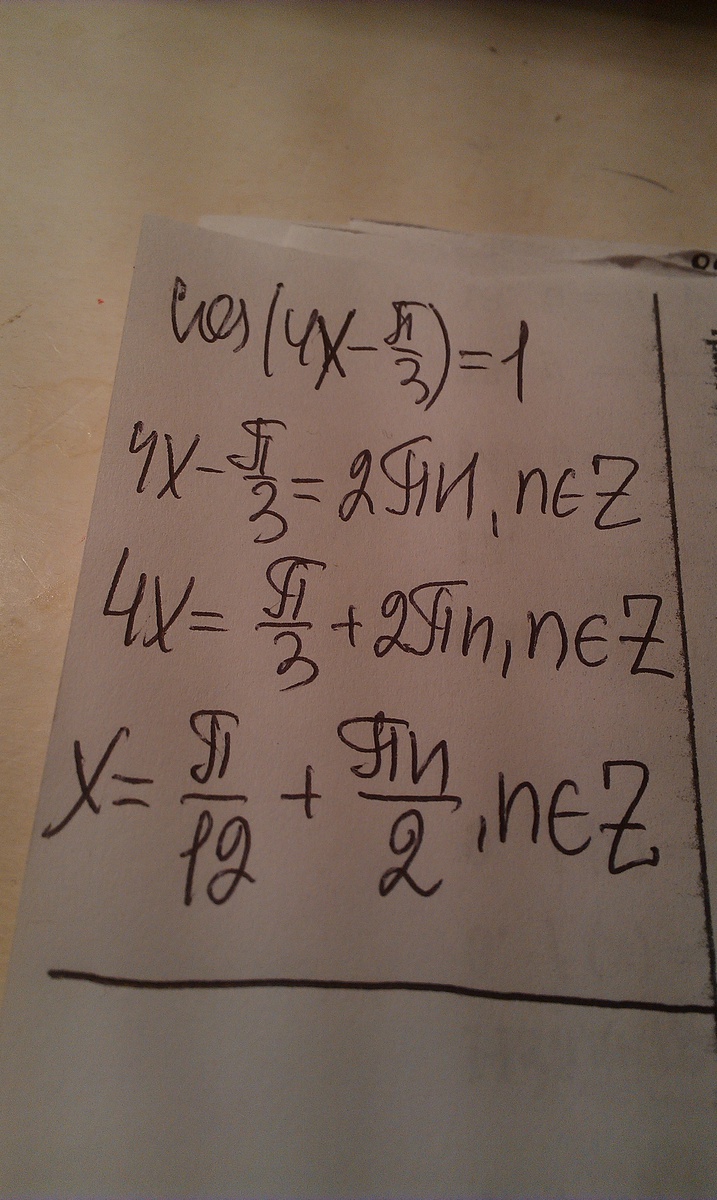 cos(4x-π/3)=1
4x-π/3=2πn, n∈Z
4x=π/3+2πn, n∈Z
x=π/12+πn/2, n∈Z